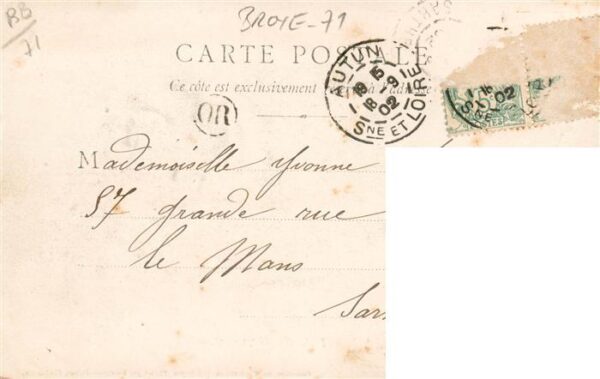 BB
71
BROYE-71
CARTE POSTALE
Ce côté est exclusivement réservé à l'adresse
AUTUN
18 15
18-9
02
SNE ET LOIRE
OR
Mademoiselle Yvonne
57 grande rue
le Mans
Sar
02
SNE